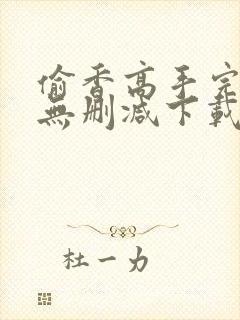 偷香高手完
無刪減下載
杜一力